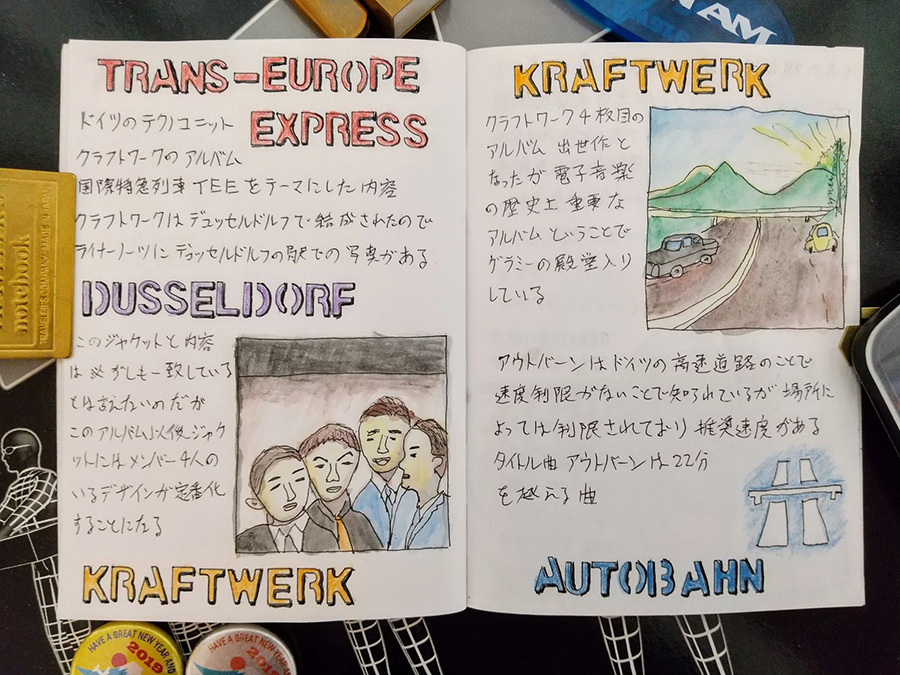 TRANS-EUROPE
EXPRESS
ドイツのテクノユニット
クラフトワークのアルバム
国際特急列車TEEをテーマにした内容
クラフトワークはデュッセルドルフで結成されたので
ライナーノーツにデュッセルドルフの駅での写真がある
DUSSELDORF
このジャケットと内容
は必ずしも一致している
とは言えないのだが
このアルバム以後ジャケ
ットにはメンバー4人の
いるデザインが定番化
することになる
KRAFTWERK
KRAFTWERK
クラフトワーク4枚目の
アルバム 出世作と
なったが電子音楽
の歴史上重要な
アルバムということで
グラミーの殿堂入り
している
アウトバーンはドイツの高速道路のことで
速度制限がないことで知られているが場所に
よっては制限されており推奨速度がある
タイトル曲アウトバーンは22分
を越える曲
AUTOBAHN
notebook
TRAVELER'S COMPANY MADE IN JAPAN
AM
HAVE A GREAT NEW YEAR AND
2019
HAVE A GREAT NEW YEAR AND